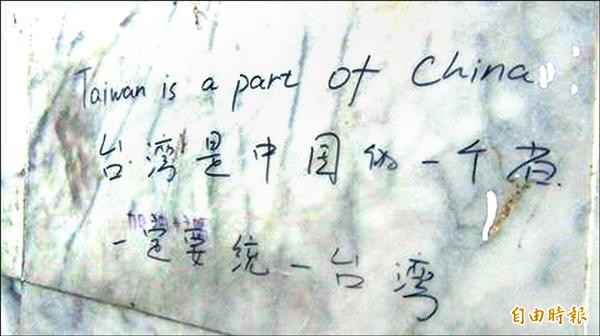 Taiwan is a part of China
台湾是中国的一个省.
一定要统一台湾
自由時報